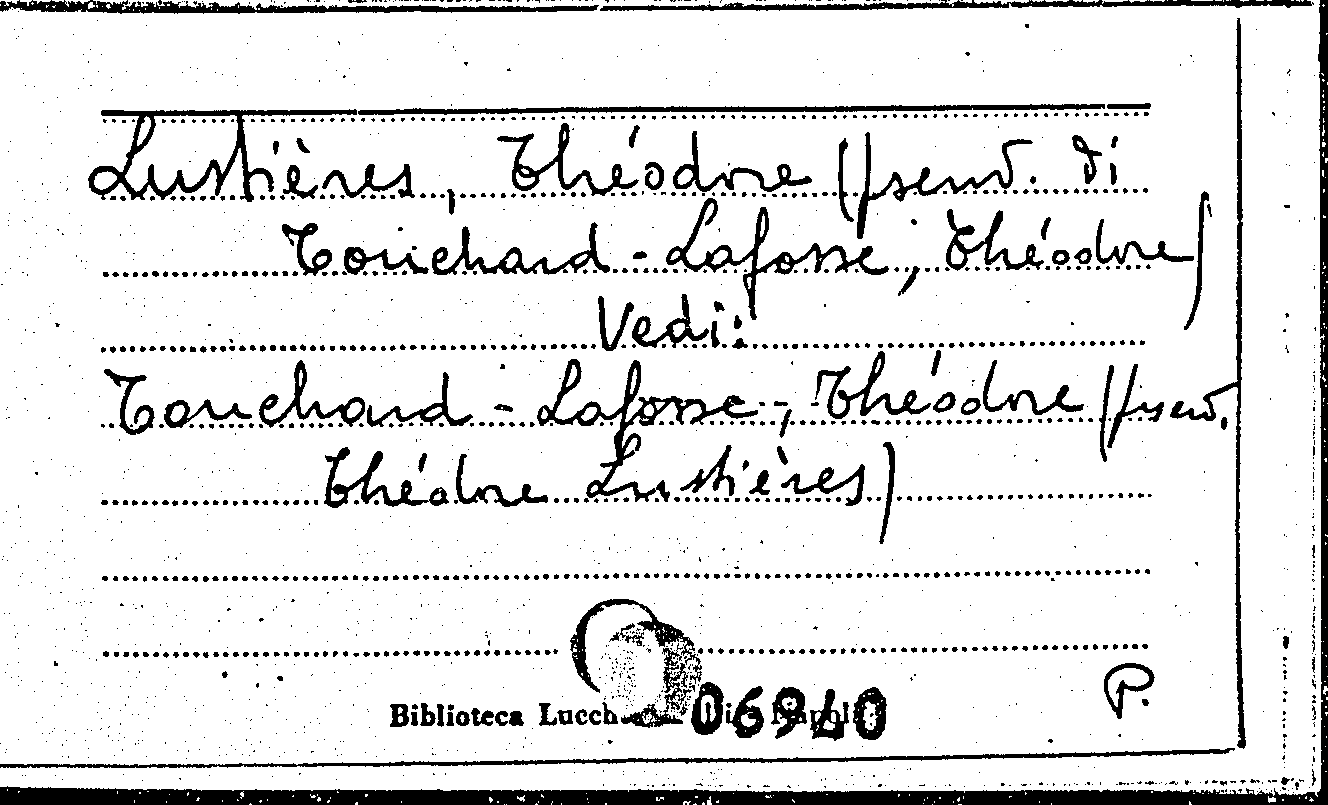 Lustières, Théodore (pseud. di
Touchard-Lafosse, Théodore)
Vedi:
Touchard-Lafosse, Théodore (pseud.
Théodore Lustières)
Biblioteca
06940
P.